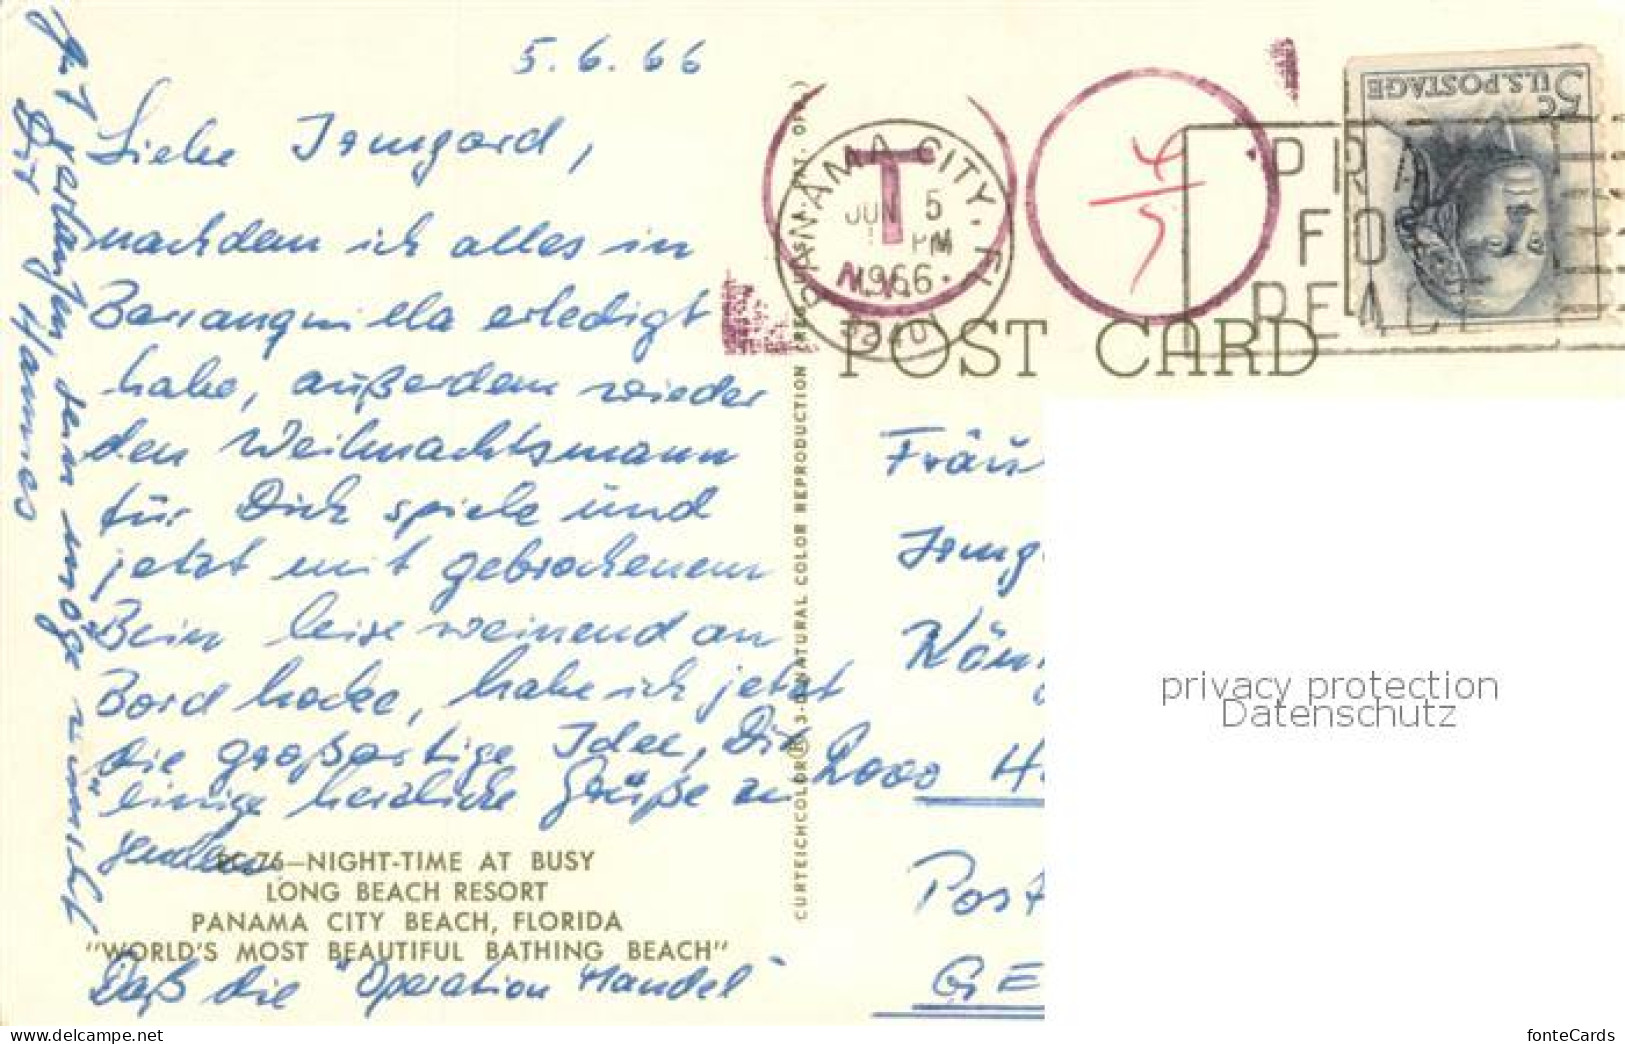 5.6.66
Liebe Irmgard,
nachdem ich alles in
Barranquilla erledigt
habe, außerdem wieder
den Weihnachtsmann
für Dich spiele und
jetzt mit gebrochenem
Bein leise weinend an
Bord hocke, habe ich jetzt
die großartige Idee, Dir
einige herzliche Grüße zu
senden
PC-76—NIGHT-TIME AT BUSY
LONG BEACH RESORT
PANAMA CITY BEACH, FLORIDA
"WORLD'S MOST BEAUTIFUL BATHING BEACH"
Daß die "Operation Mandel"
gut verlaufen sein möge wünscht
Dir Hannes
CURTEICHCOLOR® 3-D NATURAL COLOR REPRODUCTION
POST CARD
PANAMA CITY, FL
JUN 5
PM
1966
T
N.Y.
4/5
PRA
FO
DEAL
5c
U.S. POSTAGE
Fräu
Irmg
Kön
2000 H
Post
GE
privacy protection
Datenschutz
Copyright by www.ansichtskarten-center.de
fonteCards